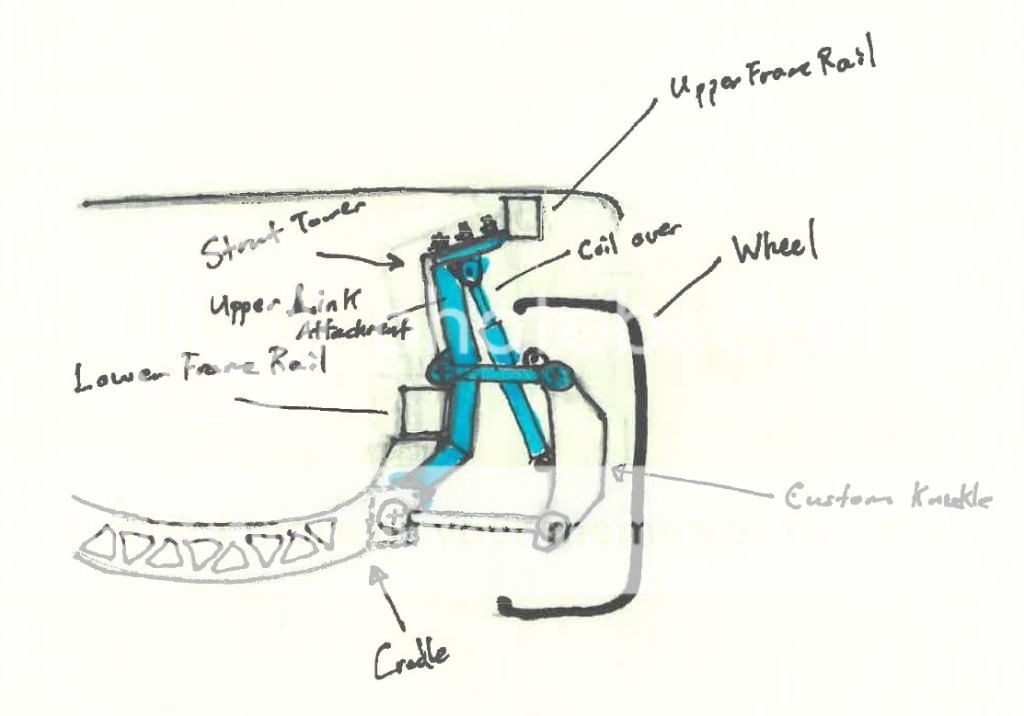 Upper Frame Rail
Strut Tower
Coil over
Wheel
Upper Link
Attachment
Lower Frame Rail
Custom Knuckle
Cradle